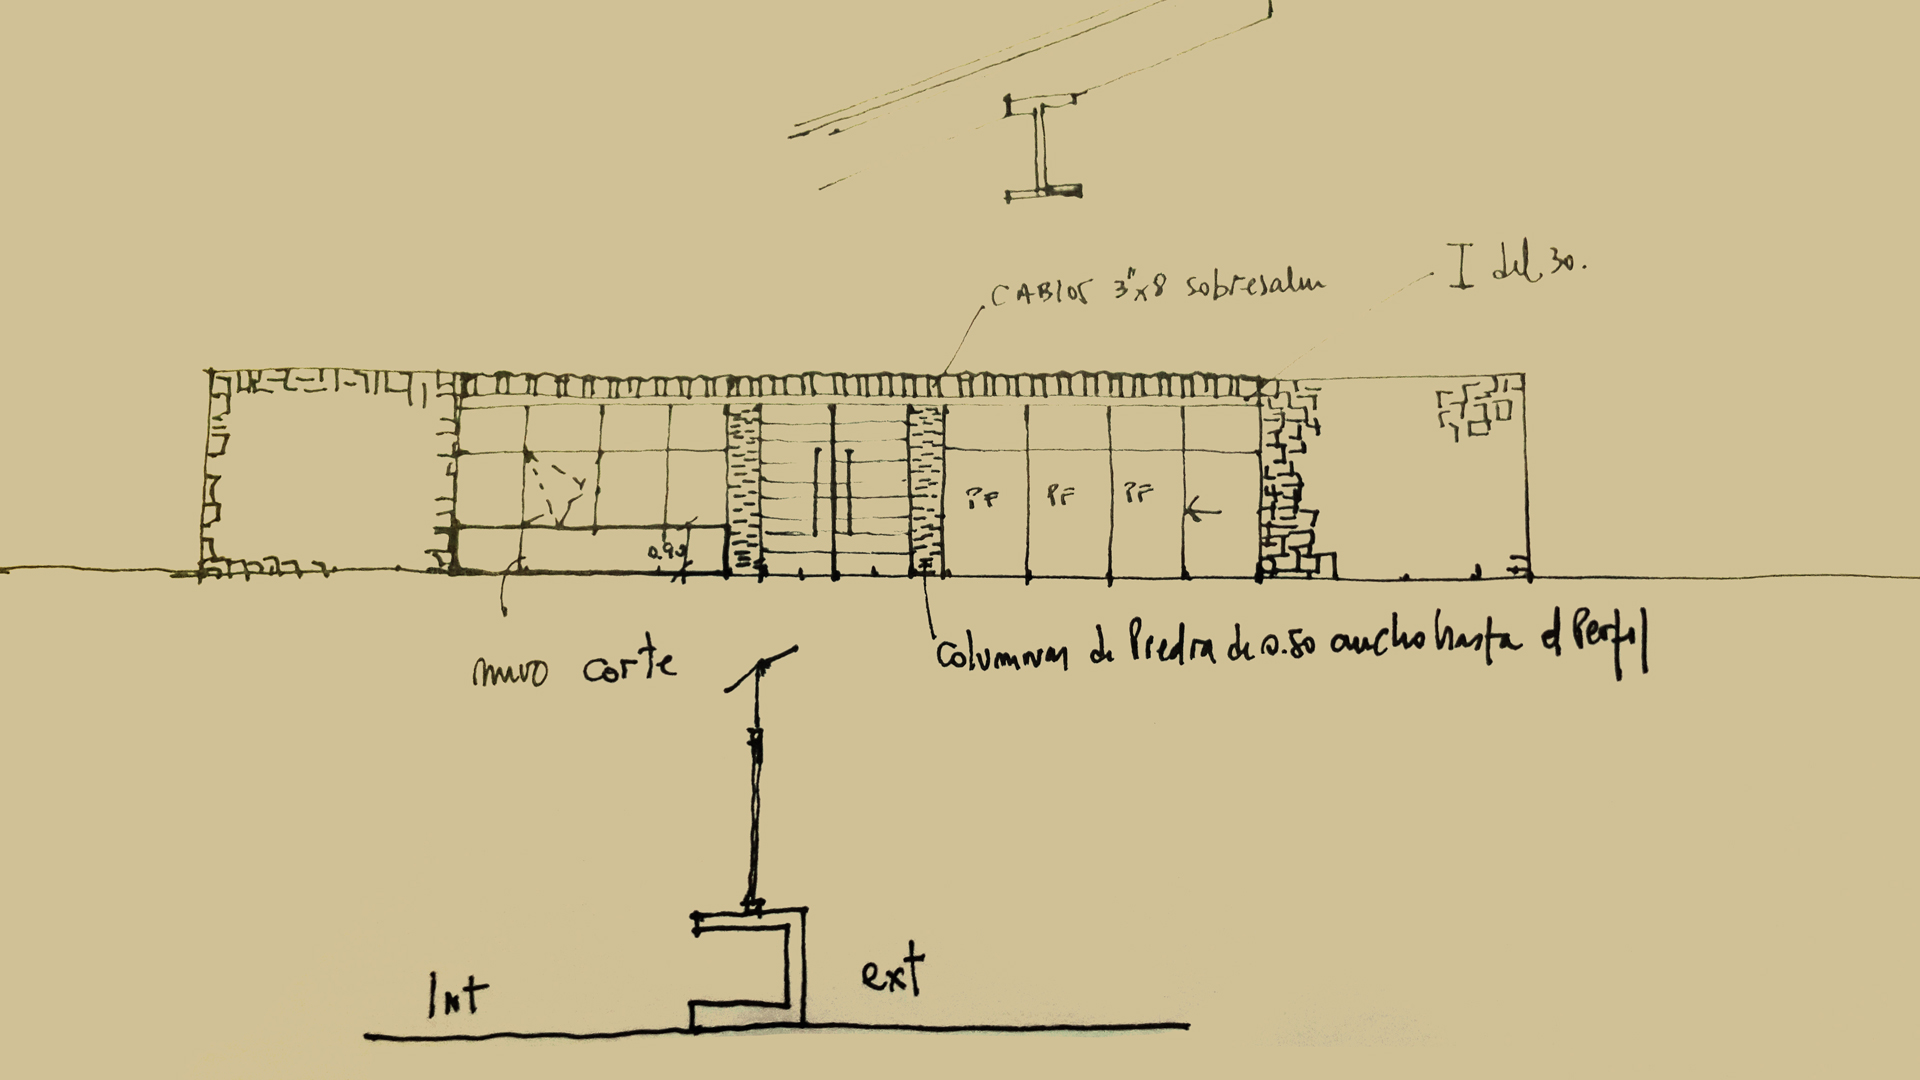 I del 30.
CABIOS 3"x8 sobresalen
PF PF PF
0.90
muro corte
Columnas de Piedra de 0.50 ancho hasta el Perfil
Int
ext